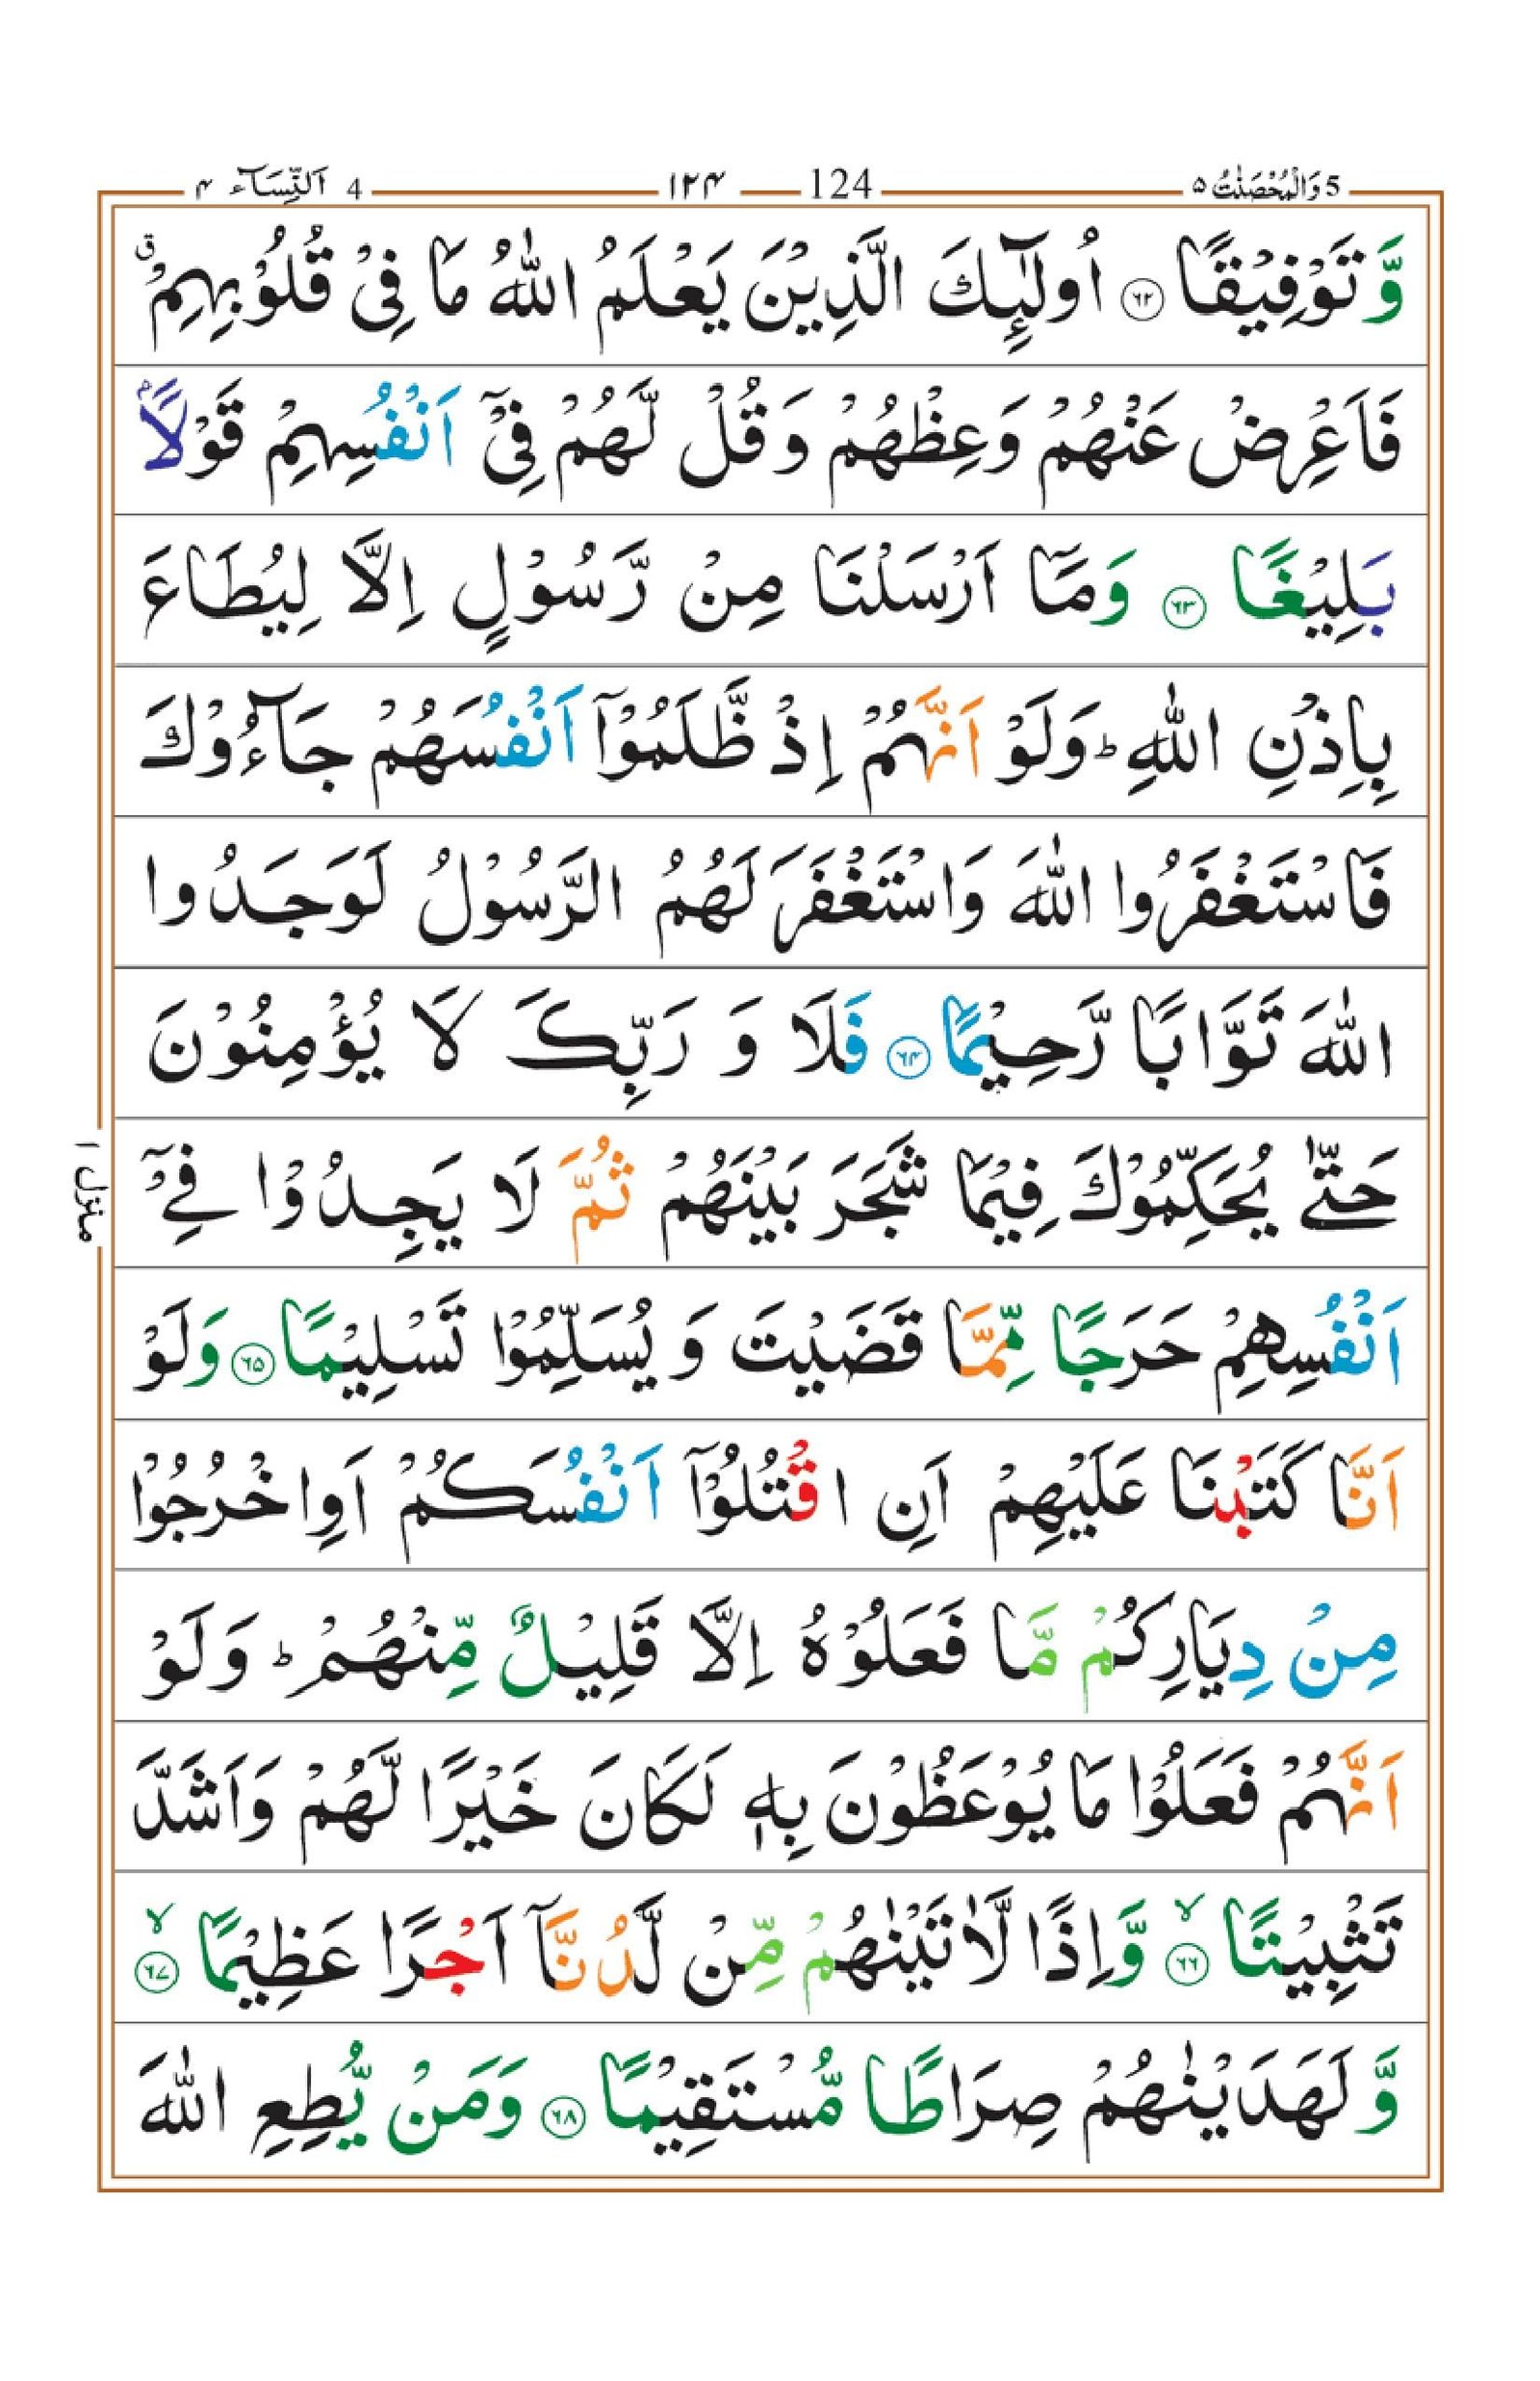 5 وَالْمُحْصَنٰتُ ۵ 124 ۱۲۴ 4 اَلنِّسَآء ۴
وَّ تَوْفِیْقًا ۶۲ اُولٰٓئِكَ الَّذِیْنَ یَعْلَمُ اللّٰهُ مَا فِیْ قُلُوْبِهِمْ ۗق
فَاَعْرِضْ عَنْهُمْ وَعِظْهُمْ وَقُلْ لَّهُمْ فِیْۤ اَنْفُسِهِمْ قَوْلًاۢ
بَلِیْغًا ۶۳ وَمَاۤ اَرْسَلْنَا مِنْ رَّسُوْلٍ اِلَّا لِیُطَاعَ
بِاِذْنِ اللّٰهِ ؕ وَلَوْ اَنَّهُمْ اِذْ ظَّلَمُوْۤا اَنْفُسَهُمْ جَآءُوْكَ
فَاسْتَغْفَرُوا اللّٰهَ وَاسْتَغْفَرَ لَهُمُ الرَّسُوْلُ لَوَجَدُوا
اللّٰهَ تَوَّابًا رَّحِیْمًا ۶۴ فَلَا وَ رَبِّكَ لَا یُؤْمِنُوْنَ
حَتّٰی یُحَكِّمُوْكَ فِیْمَا شَجَرَ بَیْنَهُمْ ثُمَّ لَا یَجِدُوْا فِیْۤ
اَنْفُسِهِمْ حَرَجًا مِّمَّا قَضَیْتَ وَ یُسَلِّمُوْا تَسْلِیْمًا ۶۵ وَلَوْ
اَنَّا كَتَبْنَا عَلَیْهِمْ اَنِ اقْتُلُوْۤا اَنْفُسَكُمْ اَوِ اخْرُجُوْا
مِنْ دِیَارِكُمْ مَّا فَعَلُوْهُ اِلَّا قَلِیْلٌ مِّنْهُمْ ؕ وَلَوْ
اَنَّهُمْ فَعَلُوْا مَا یُوْعَظُوْنَ بِهٖ لَكَانَ خَیْرًا لَّهُمْ وَاَشَدَّ
تَثْبِیْتًا ۙ ۶۶ وَّاِذًا لَّاٰتَیْنٰهُمْ مِّنْ لَّدُنَّاۤ اَجْرًا عَظِیْمًا ۙ ۶۷
وَّ لَهَدَیْنٰهُمْ صِرَاطًا مُّسْتَقِیْمًا ۶۸ وَمَنْ یُّطِعِ اللّٰهَ
منزل ۱